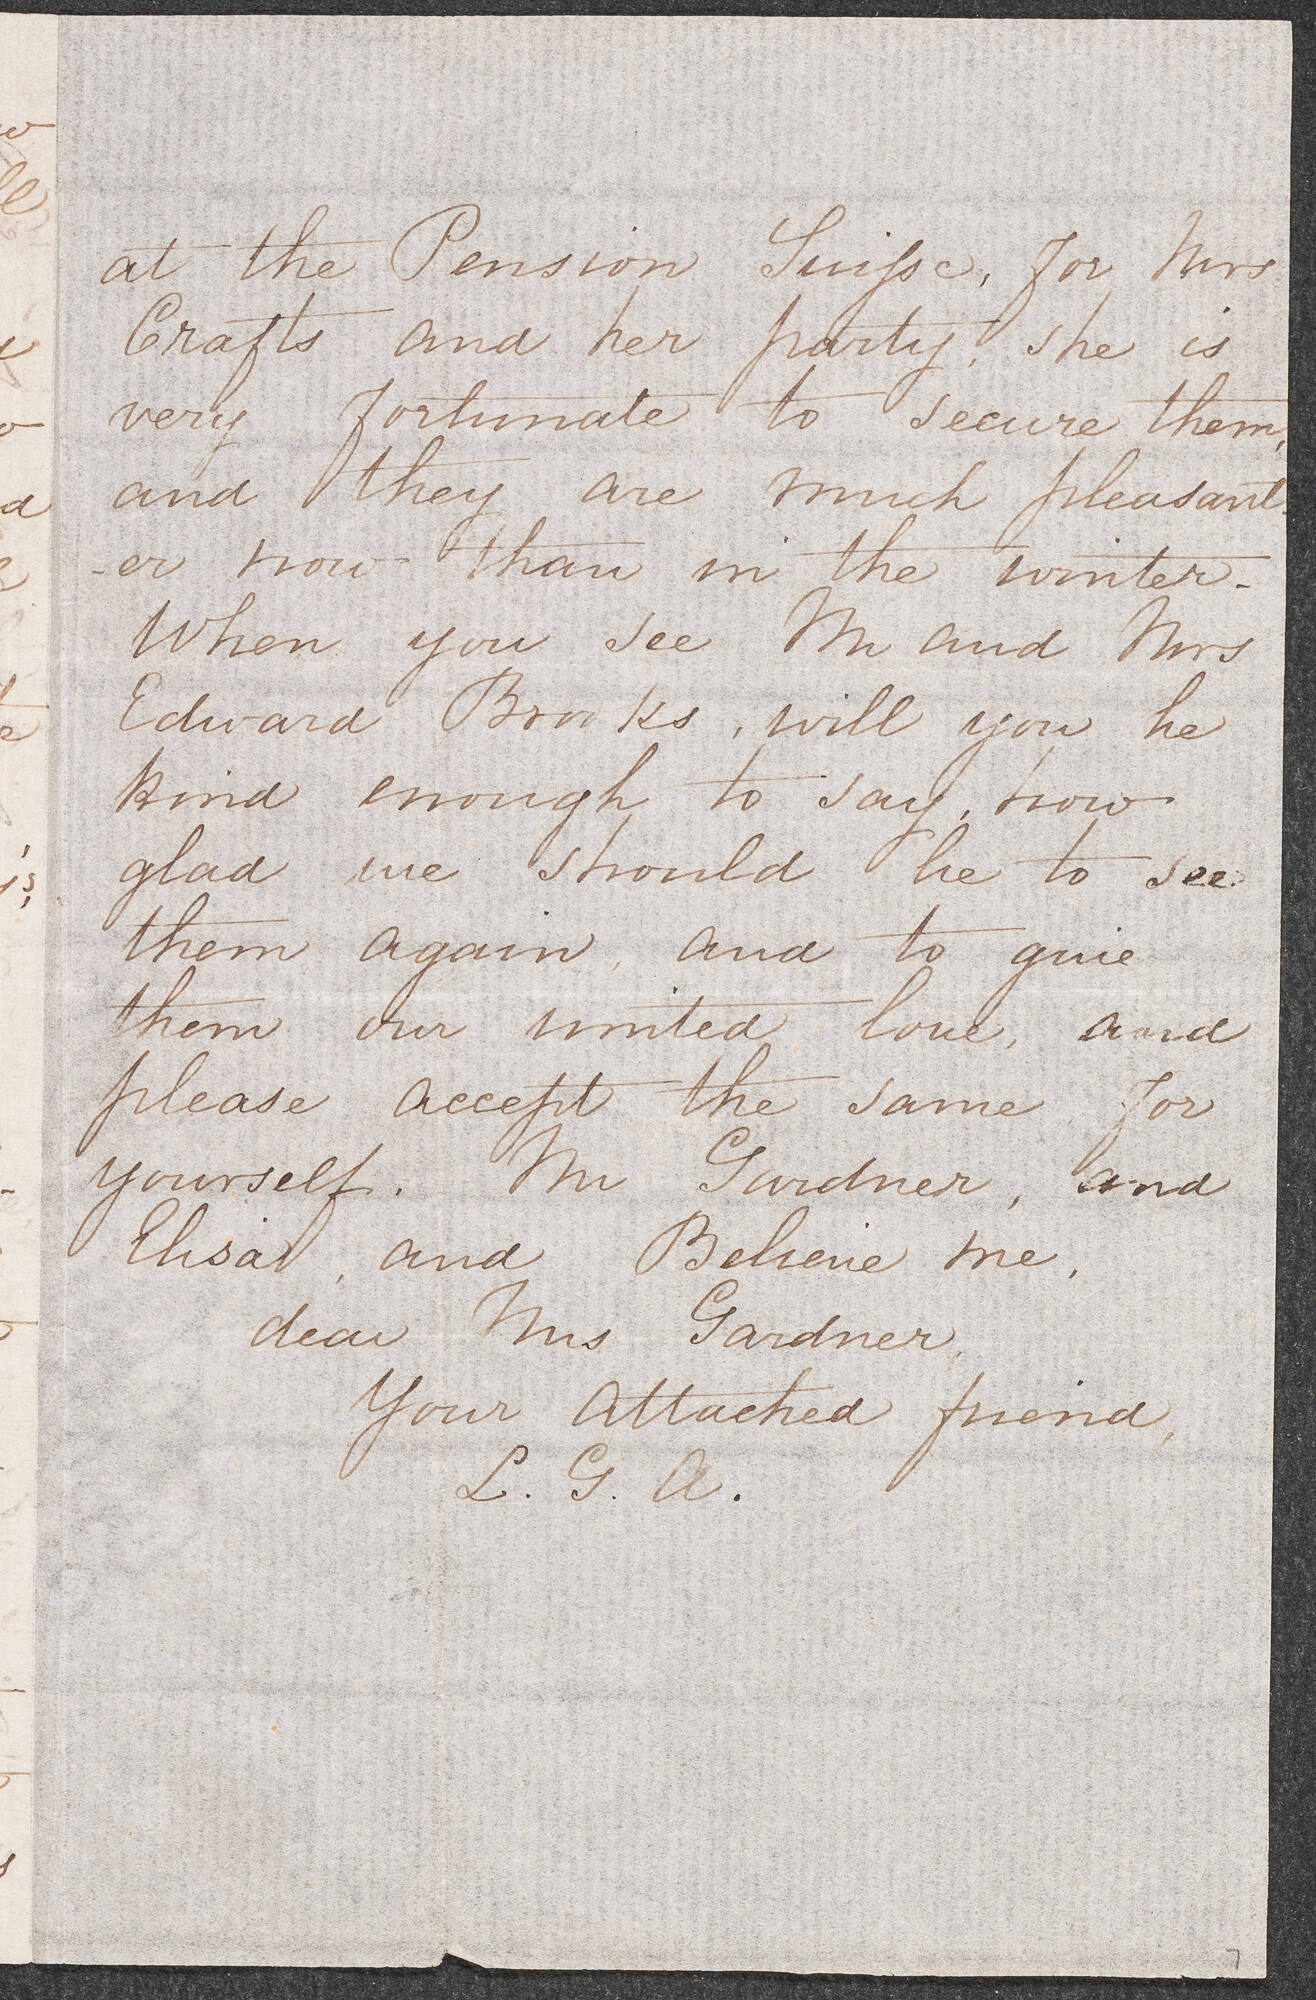 at the Pension Suisse, for Mrs
Crafts and her party, she is
very fortunate to secure them,
and they are much pleasant
-er now than in the winter-
When you see Mr and Mrs
Edward Brooks, will you be
kind enough to say, how
glad we should be to see
them again, and to give
them our united love, and
please accept the same for
yourself. Mr Gardner, and
Elisa, and Believe me,
dear Mrs Gardner,
Your attached friend,
L. G. A.
7